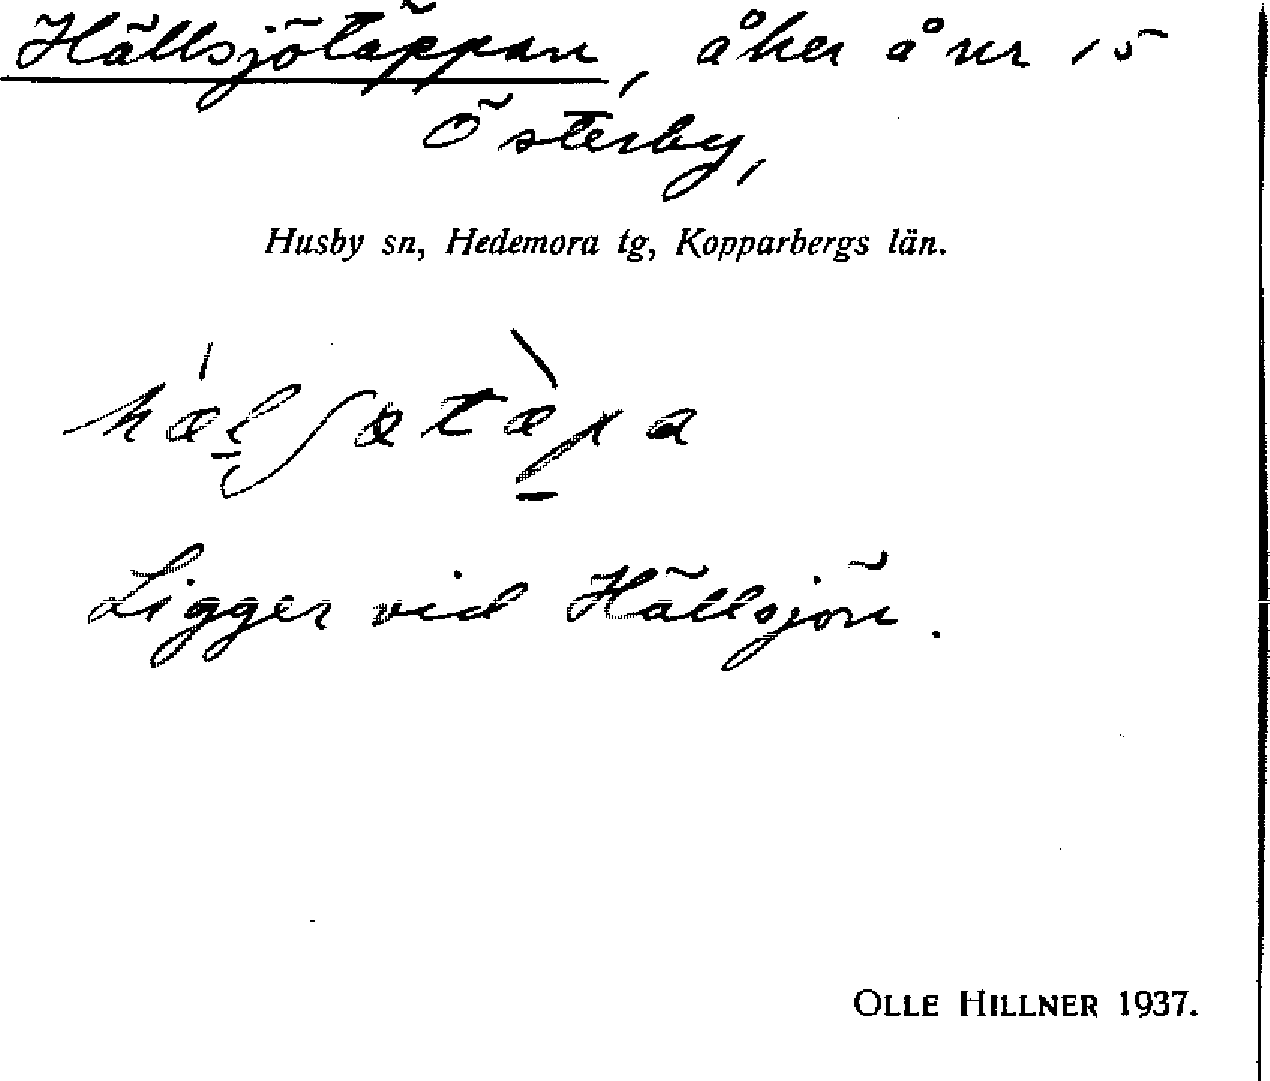 Hällsjötäppan, åker å nr 15
Österby,
Husby sn, Hedemora tg, Kopparbergs län.
Ligger vid Hällsjön.
OLLE HILLNER 1937.